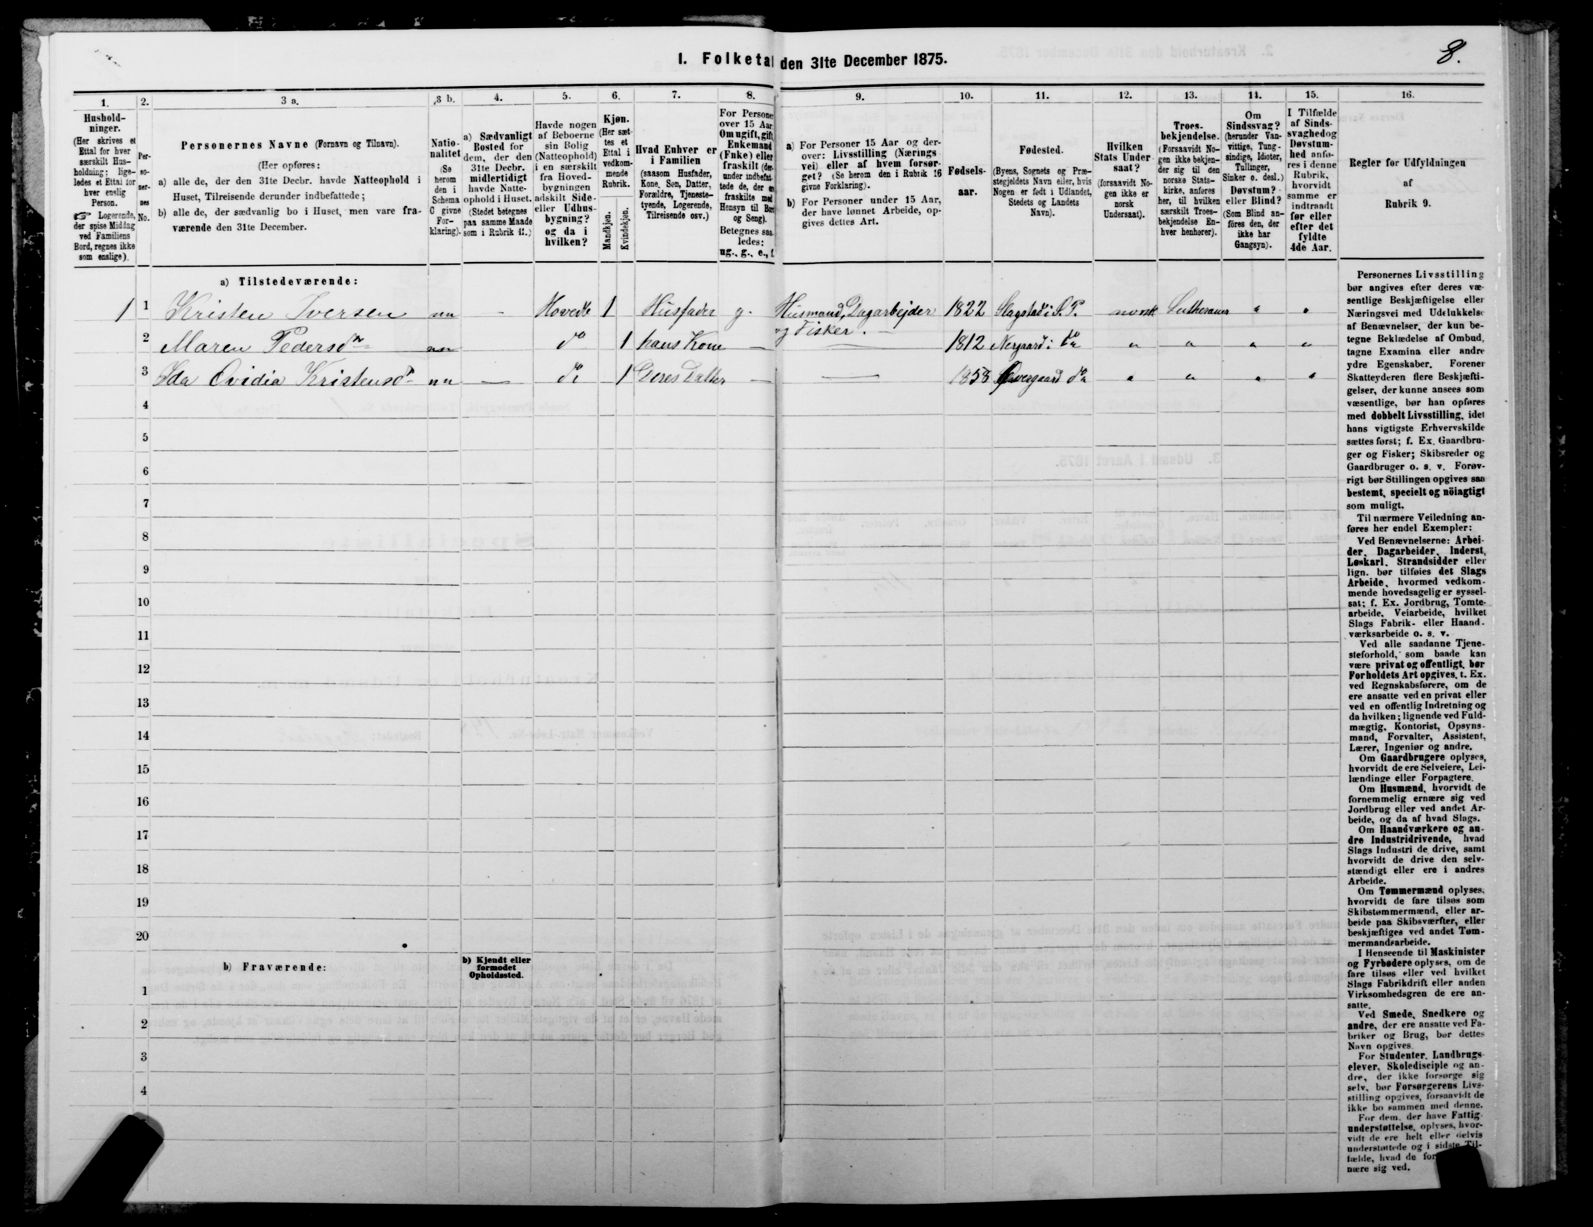 8.
I. Folketal den 31te December 1875.
1. 2. 3 a. 3 b. 4. 5. 6. 7. 8. 9. 10. 11. 12. 13. 14. 15. 16.
Hushold-
ninger.
(Her skrives et
Ettal for hver
særskilt Hus-
holdning; lige-
ledes et Ettal for
hver enslig
Person.
☞ Logerende,
der spise Middag
ved Familiens
Bord, regnes ikke
som enslige).
Per-
so-
ner-
nes
No.
Personernes Navne (Fornavn og Tilnavn).
(Her opføres:
a) alle de, der den 31te Decbr. havde Natteophold i
Huset, Tilreisende derunder indbefattede;
b) alle de, der sædvanlig bo i Huset, men vare fra-
værende den 31te December.
Natio-
nalitet
(Se
herom
den i
Schema
C givne
For-
klaring).
a) Sædvanligt
Bosted for
dem, der den
31te Decbr.
midlertidigt
havde Natte-
ophold i Huset.
(Stedet betegnes
paa samme Maade
som i Rubrik 11.)
Havde nogen
af Beboerne
sin Bolig
(Natteophold)
i en særskilt
fra Hoved-
bygningen
adskilt Side-
eller Udhus-
bygning?
og da i
hvilken?
Kjøn.
(Her sæt-
tes et
Ettal i
vedkom-
mende
Rubrik.
Mandkjøn.
Kvindekjøn.
Hvad Enhver er
i Familien
(saasom Husfader,
Kone, Søn, Datter,
Forældre, Tjeneste-
tyende, Logerende,
Tilreisende osv.)
For Persone
over 15 Aar
Om ugift, gift
Enkemand
(Enke) eller
fraskilt (der-
under indbefat-
tede de, der e
fraskilte med
Hensyn til Bo
og Seng).
Betegnes saa
ledes:
ug., g., e., f.
a) For Personer 15 Aar og der-
over: Livsstilling (Nærings
vei) eller af hvem forsør-
get? (Se herom den i Rubrik 16
givne Forklaring).
b) For Personer under 15 Aar,
der have lønnet Arbeide, op-
gives dettes Art.
Fødsels-
aar.
Fødested.
(Byens, Sognets og Præ-
stegjeldets Navn eller, hvis
Nogen er født i Udlandet,
Stedets og Landets
Navn).
Hvilken
Stats Under-
saat?
(forsaavidt No-
gen ikke er
norsk
Undersaat).
Troes-
bekjendelse.
(Forsaavidt No-
gen ikke bekjen-
der sig til den
norske Stats-
kirke, anføres
her, til hvilken
særskilt Troes-
bekjendelse En-
hver henhører).
Om
Sindssvag?
(herunder Van-
vittige, Tung-
sindige, Idioter,
Tullinger,
Sinker o. desl.)
Døvstum?
eller Blind?
(Som Blind an-
føres den, der
ikke har
Gangsyn).
I Tilfælde
af Sinds-
svaghed og
Døvstum-
hed anfø-
res i denne
Rubrik,
hvorvidt
samme er
indtraadt
før eller
efter det
fyldte
4de Aar.
Regler for Udfyldningen
af
Rubrik 9.
a) Tilstedeværende:
1 1 Kristen Iversen nn - Hovedb 1 Husfader g. Husmand, Dagarbejder 1822 norsk Lutheraner " "
og Fisker. —
2 Maren Pedersdr nn do 1 hans Kone — 1812 Nergaard i do " " " "
3 Ida Ovidia Kristensdr nn — do 1 Deres Datter — — 1858 Overgaard do " " " "
4
5
6
7
8
9
10
11
12
13
14
15
16
17
18
19
20
b) Fraværende:
b) Kjendt eller
formodet
Opholdssted.
1
2
3
4
Personernes Livsstilling
bør angives efter deres væ-
sentlige Beskjæftigelse eller
Næringsvei med Udelukkelse
af Benævnelser, der kun be-
tegne Beklædelse af Ombud,
tagne Examina eller andre
ydre Egenskaber. Forener
Skatteyderen flere Beskjæfti-
gelser, der kunne ansees som
væsentlige, bør han opføres
med dobbelt Livsstilling, idet
hans vigtigste Erhvervskilde
sættes først; f. Ex. Gaardbru-
ger og Fisker; Skibsreder og
Gaardbruger o. s. v. Forøv-
rigt bør Stillingen opgives saa
bestemt, specielt og nöiagtigt
som muligt.
Til nærmere Veiledning an-
føres her endel Exempler:
Ved Benævnelserne: Arbei-
der, Dagarbeider, Inderst,
Løskarl, Strandsidder eller
lign. bør tilføies det Slags
Arbeide, hvormed vedkom-
mende hovedsagelig er syssel-
sat; f. Ex. Jordbrug, Tomte-
arbeide, Veiarbeide, hvilket
Slags Fabrik- eller Haand-
værksarbeide o. s. v.
Ved alle saadanne Tjene-
steforhold, som baade kan
være privat og offentligt, bør
Forholdets Art opgives, t. Ex.
ved Regnskabsførere, om de
ere ansatte ved en privat eller
ved en offentlig Indretning og
da hvilken; lignende ved Fuld-
mægtig, Kontorist, Opsyns-
mand, Forvalter, Assistent,
Lærer, Ingeniør og andre.
Om Gaardbrugere oplyses,
hvorvidt de ere Selveiere, Lei-
lændinge eller Forpagtere.
Om Husmænd, hvorvidt de
fornemmelig ernære sig ved
Jordbrug eller ved andet Ar-
beide, og da af hvad Slags.
Om Haandværkere og an-
dre Industridrivende, hvad
Slags Industri de drive, samt
hvorvidt de drive den selv-
stændigt eller ere i andres
Arbeide.
Om Tømmermænd oplyses,
hvorvidt de fare tilsøs som
Skibstømmermænd, eller ar-
beide paa Skibsværfter, eller
beskjæftiges ved andet Tøm-
mermandsarbeide.
I Henseende til Maskinister
og Fyrbødere oplyses, om de
fare tilsøs eller ved hvilket
Slags Fabrikdrift eller anden
Virksomhedsgren de ere an-
satte.
Ved Smede, Snedkere og
andre, der ere ansatte ved Fa-
briker og Brug, bør dettes
Navn opgives.
For Studenter, Landbrugs-
elever, Skoledisciple og an-
dre, der ikke forsørge sig
selv, bør Forsørgerens Livs-
stilling opgives, forsaavidt de
ikke bo sammen med denne.
For dem, der have Fattig-
understøttelse, oplyses, hvor-
vidt de ere helt eller delvis
understøttede og i sidste Til-
fælde, hvad de for
nære sig ved.